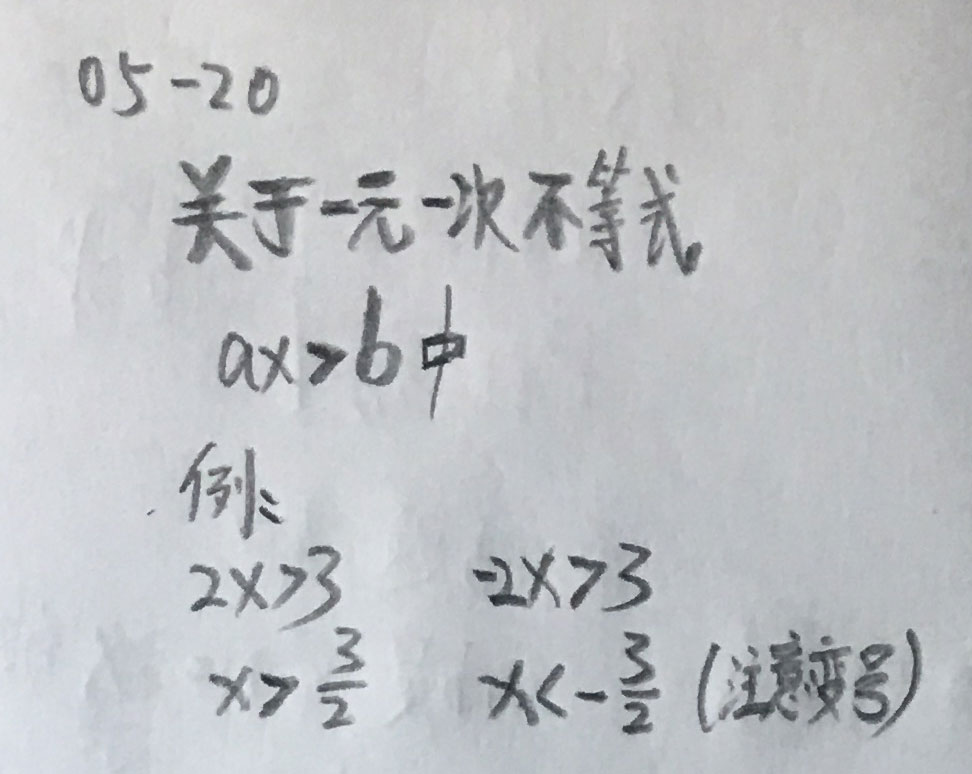 05-20
关于一元一次不等式
ax>b中
例:
2x>3 -2x>3
x>3/2 x<-3/2 (注意变号)